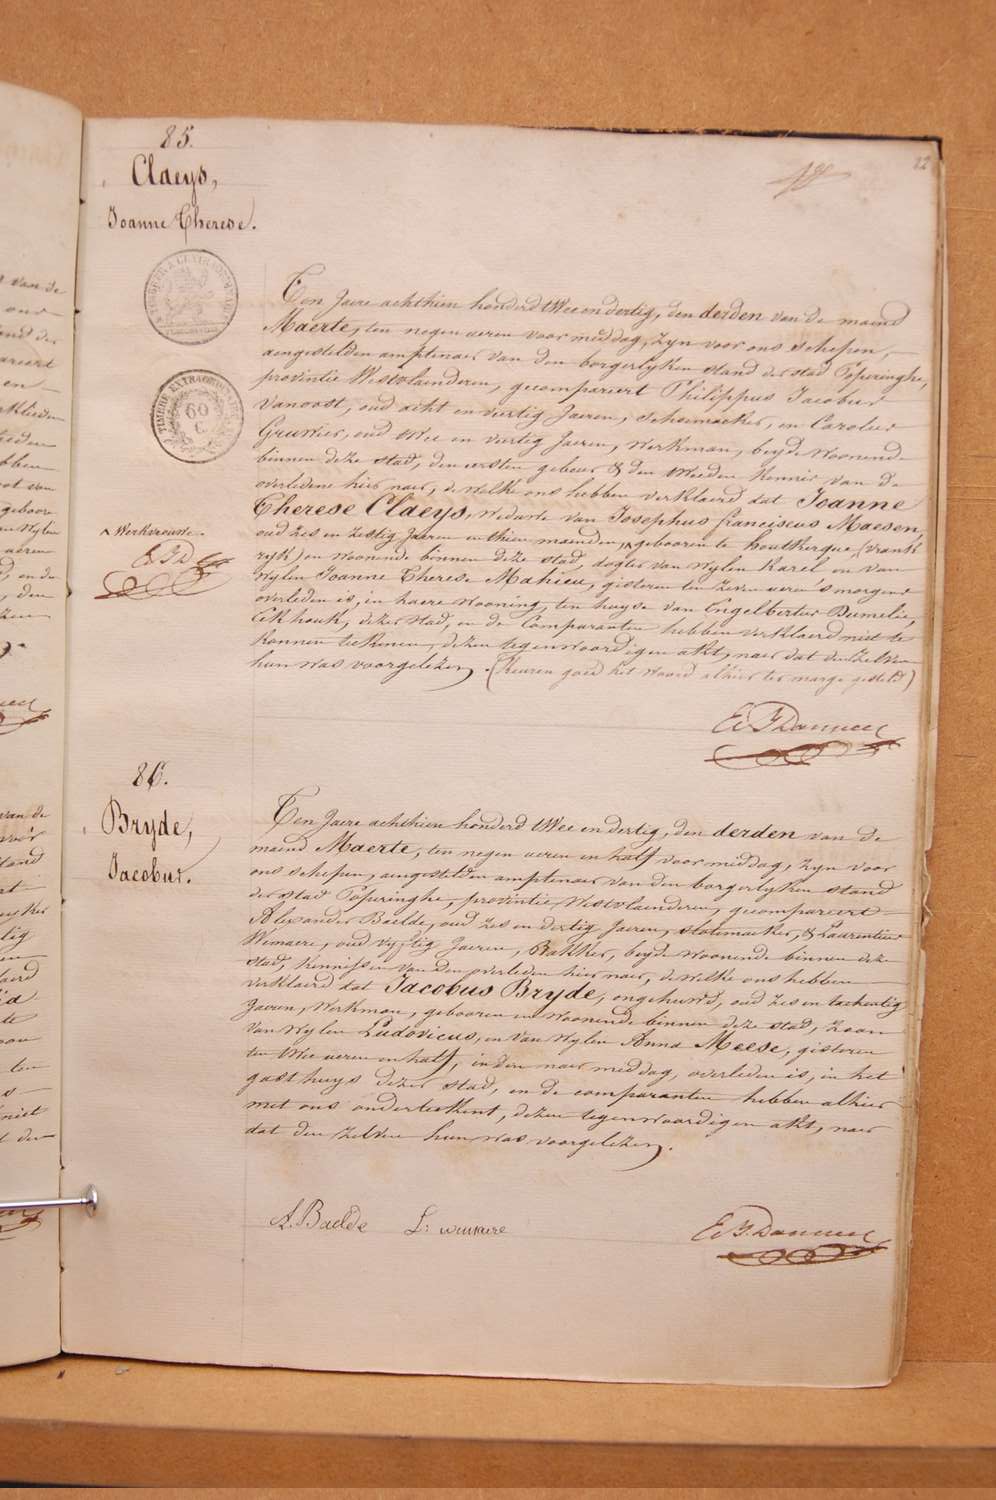 22
85.
Claeys,
Joanne Therese.
TIMBRE EXTRAORDINAIRE
60
C
Ten Jaere achthien honderd twee en dertig, den derden van de maend
Maerte, ten negen ueren voor middag, zyn voor ons schepen,
aengestelden amptenaer van den borgerlyken stand der stad Poperinghe,
provintie Westvlaenderen, gecompareert Philippus Jacobus
Vanoost, oud acht en viertig Jaeren, schoenmaeker, en Carolus
Gruwier, oud twee en viertig Jaeren, Werkman, beyde woonende
binnen deze stad, den eersten gebeur & den tweeden kennis van de
overledene hier naer, de welke ons hebben verklaerd dat Joanne
Therese Claeys, weduwe van Josephus franciscus Maesen,
oud zes en zestig Jaeren en thien maenden, ^ gebooren te houtkerque (vrank
ryk) en woonende binnen deze stad, dogter van wylen Karel en van
wylen Joanne Therese Mahieu, gisteren ten zeven ueren 's morgens
overleden is, in haere wooning, ten huyse van Engelbertus Dumelie,
Eekhouk, dezer stad, en de Comparanten hebben verklaerd niet te
konnen teekenen, dezen tegenwoordigen akt, naer dat den zelven
hun was voorgelezen. (keuren goed het woord alhier ter marge gesteld)
^ Werkvrouwe
86.
Bryde,
Jacobus.
Ten Jaere achthien honderd twee en dertig, den derden van de
maend Maerte, ten negen ueren en half voor middag, zyn voor
ons schepen, aengestelden amptenaer van den borgerlyken stand
der stad Poperinghe, provintie Westvlaenderen, gecompareert
Alexander Baelde, oud zes en dertig Jaeren, slotemaeker, & Laurentius
Wemaere, oud vyftig Jaeren, Bakker, beyde woonende binnen deze
stad, kennissen van den overleden hier naer, de welke ons hebben
verklaerd dat Jacobus Bryde, ongehuwd, oud zes en tachentig
Jaeren, Werkman, gebooren en woonende binnen deze stad, zoon
van wylen Ludovicus, en van wylen Anna Meese, gisteren
ten twee ueren en half, in den naer middag, overleden is, in het
gasthuys dezer stad, en de comparanten hebben alhier
met ons onderteekent, dezen tegenwoordigen akt, naer
dat den zelven hun was voorgelezen.
A. Baelde L: wemaere